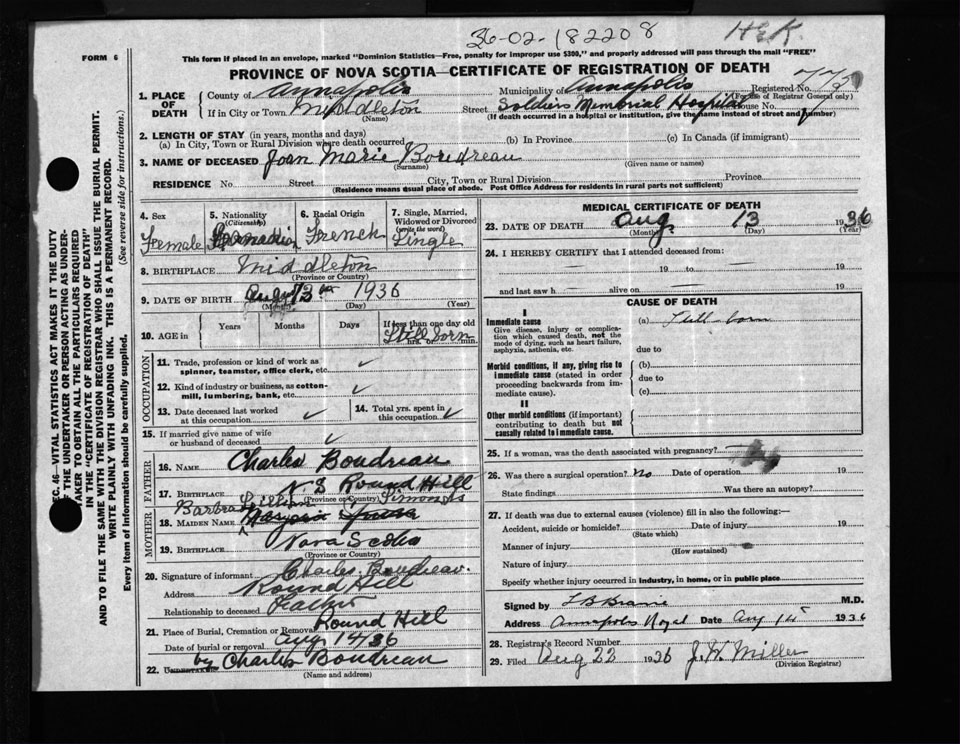 36-02-182208
H.E.K.
FORM 6
This form if placed in an envelope, marked "Dominion Statistics—Free, penalty for improper use $300," and properly addressed will pass through the mail "FREE"
PROVINCE OF NOVA SCOTIA—CERTIFICATE OF REGISTRATION OF DEATH
1. PLACE OF DEATH
County of Annapolis Municipality of Annapolis Registered No. 775
(For use of Registrar General only)
If in City or Town Middleton Street Soldiers Memorial Hospital House No.
(Name) (If death occurred in a hospital or institution, give the name instead of street and number)
2. LENGTH OF STAY (in years, months and days)
(a) In City, Town or Rural Division where death occurred (b) In Province (c) In Canada (if immigrant)
3. NAME OF DECEASED Joan Marie Boudreau
(Surname) (Given name or names)
RESIDENCE No. Street City, Town or Rural Division Province
(Residence means usual place of abode. Post Office Address for residents in rural parts not sufficient)
4. Sex
Female
5. Nationality (Citizenship)
Canadian
6. Racial Origin
French
7. Single, Married, Widowed or Divorced (write the word)
Single
8. BIRTHPLACE Middleton
(Province or Country)
9. DATE OF BIRTH Aug 13th 1936
(Month) (Day) (Year)
10. AGE in Years Months Days If less than one day old
Still born
hrs. or min.
OCCUPATION
11. Trade, profession or kind of work as spinner, teamster, office clerk, etc. ✓
12. Kind of industry or business, as cotton-mill, lumbering, bank, etc. ✓
13. Date deceased last worked at this occupation ✓
14. Total yrs. spent in this occupation ✓
15. If married give name of wife or husband of deceased ✓
FATHER
16. NAME Charles Boudreau
17. BIRTHPLACE N S Round Hill
(Province or Country)
MOTHER
Barbra Lillian Simonds
18. MAIDEN NAME Marjorie
19. BIRTHPLACE Nova Scotia
(Province or Country)
20. Signature of informant Charles Boudreau.
Address Round Hill
Relationship to deceased Father
21. Place of Burial, Cremation or Removal Round Hill
Date of burial or removal Aug 15/36
22. UNDERTAKER by Charles Boudreau
(Name and address)
MEDICAL CERTIFICATE OF DEATH
23. DATE OF DEATH Aug. 13 1936
(Month) (Day) (Year)
24. I HEREBY CERTIFY that I attended deceased from:
19 to 19
and last saw h alive on 19
CAUSE OF DEATH
I
Immediate cause
Give disease, injury or complication which caused death, not the mode of dying, such as heart failure, asphyxia, asthenia, etc.
(a) Still-born
due to
Morbid conditions, if any, giving rise to immediate cause (stated in order proceeding backwards from immediate cause).
(b)
due to
(c)
II
Other morbid conditions (if important) contributing to death but not causally related to immediate cause.
25. If a woman, was the death associated with pregnancy?
26. Was there a surgical operation? No Date of operation 19
State findings Was there an autopsy?
27. If death was due to external causes (violence) fill in also the following:—
Accident, suicide or homicide? Date of injury 19
(State which)
Manner of injury
(How sustained)
Nature of injury
Specify whether injury occurred in industry, in home, or in public place
Signed by M.D.
Address Annapolis Royal Date Aug 14 1936
28. Registrar's Record Number
29. Filed Aug 22 1936 J. W. Miller
(Division Registrar)
SEC. 46—VITAL STATISTICS ACT MAKES IT THE DUTY OF THE UNDERTAKER OR PERSON ACTING AS UNDERTAKER TO OBTAIN ALL THE PARTICULARS REQUIRED IN THE "CERTIFICATE OF REGISTRATION OF DEATH" AND TO FILE THE SAME WITH THE DIVISION REGISTRAR WHO SHALL ISSUE THE BURIAL PERMIT.
WRITE PLAINLY WITH UNFADING INK. THIS IS A PERMANENT RECORD.
Every item of information should be carefully supplied. (See reverse side for instructions.)